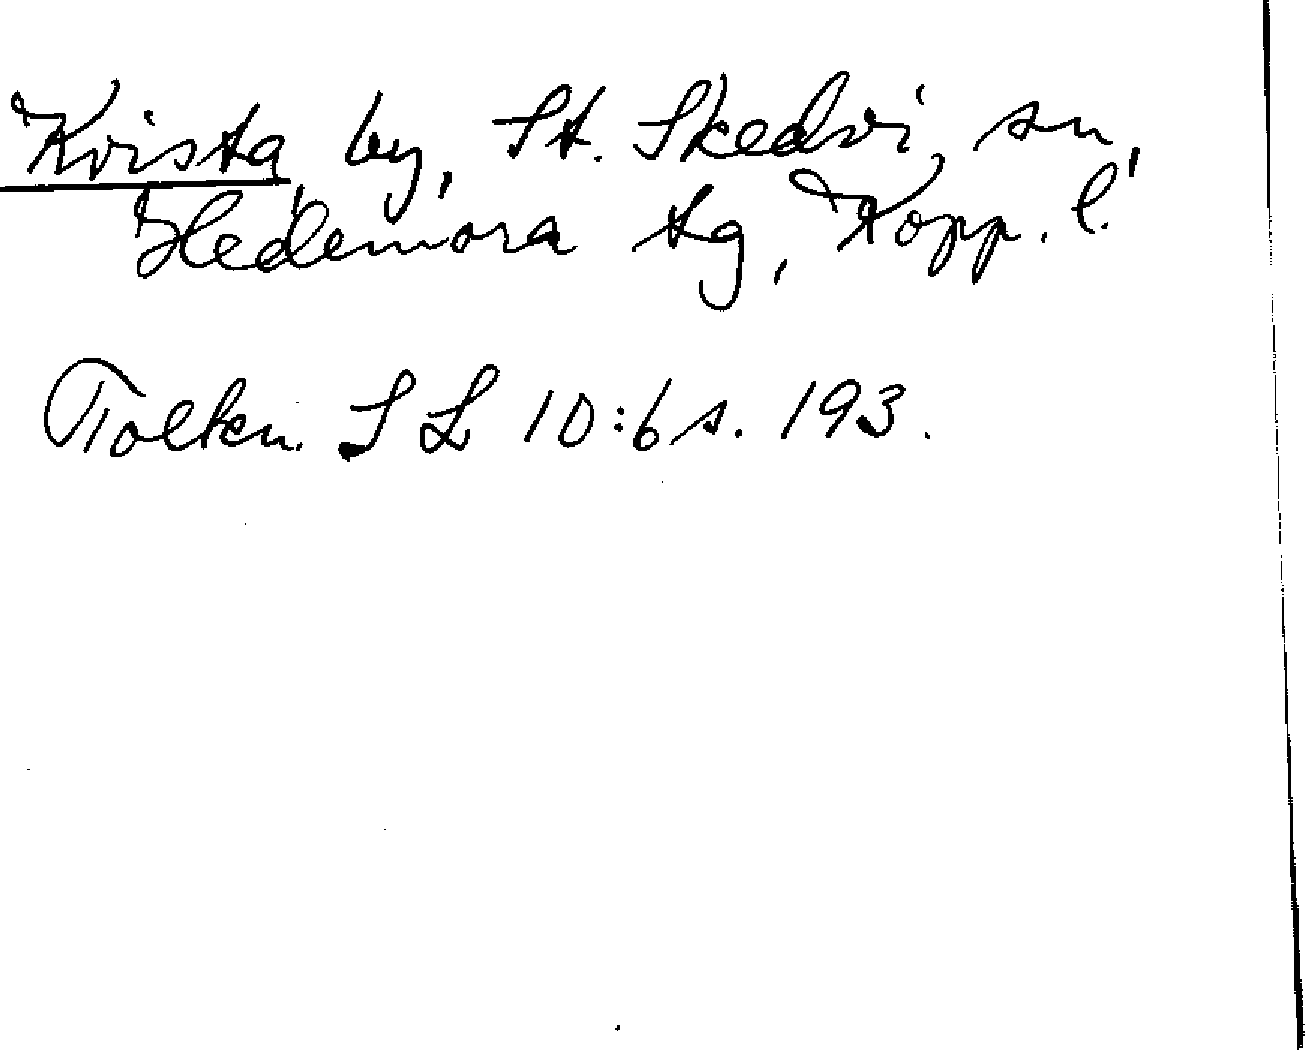 Kvista by, St. Skedvi sn,
Hedemora tg, Kopp. l.
Tolkn. SL 10:6 s. 193.